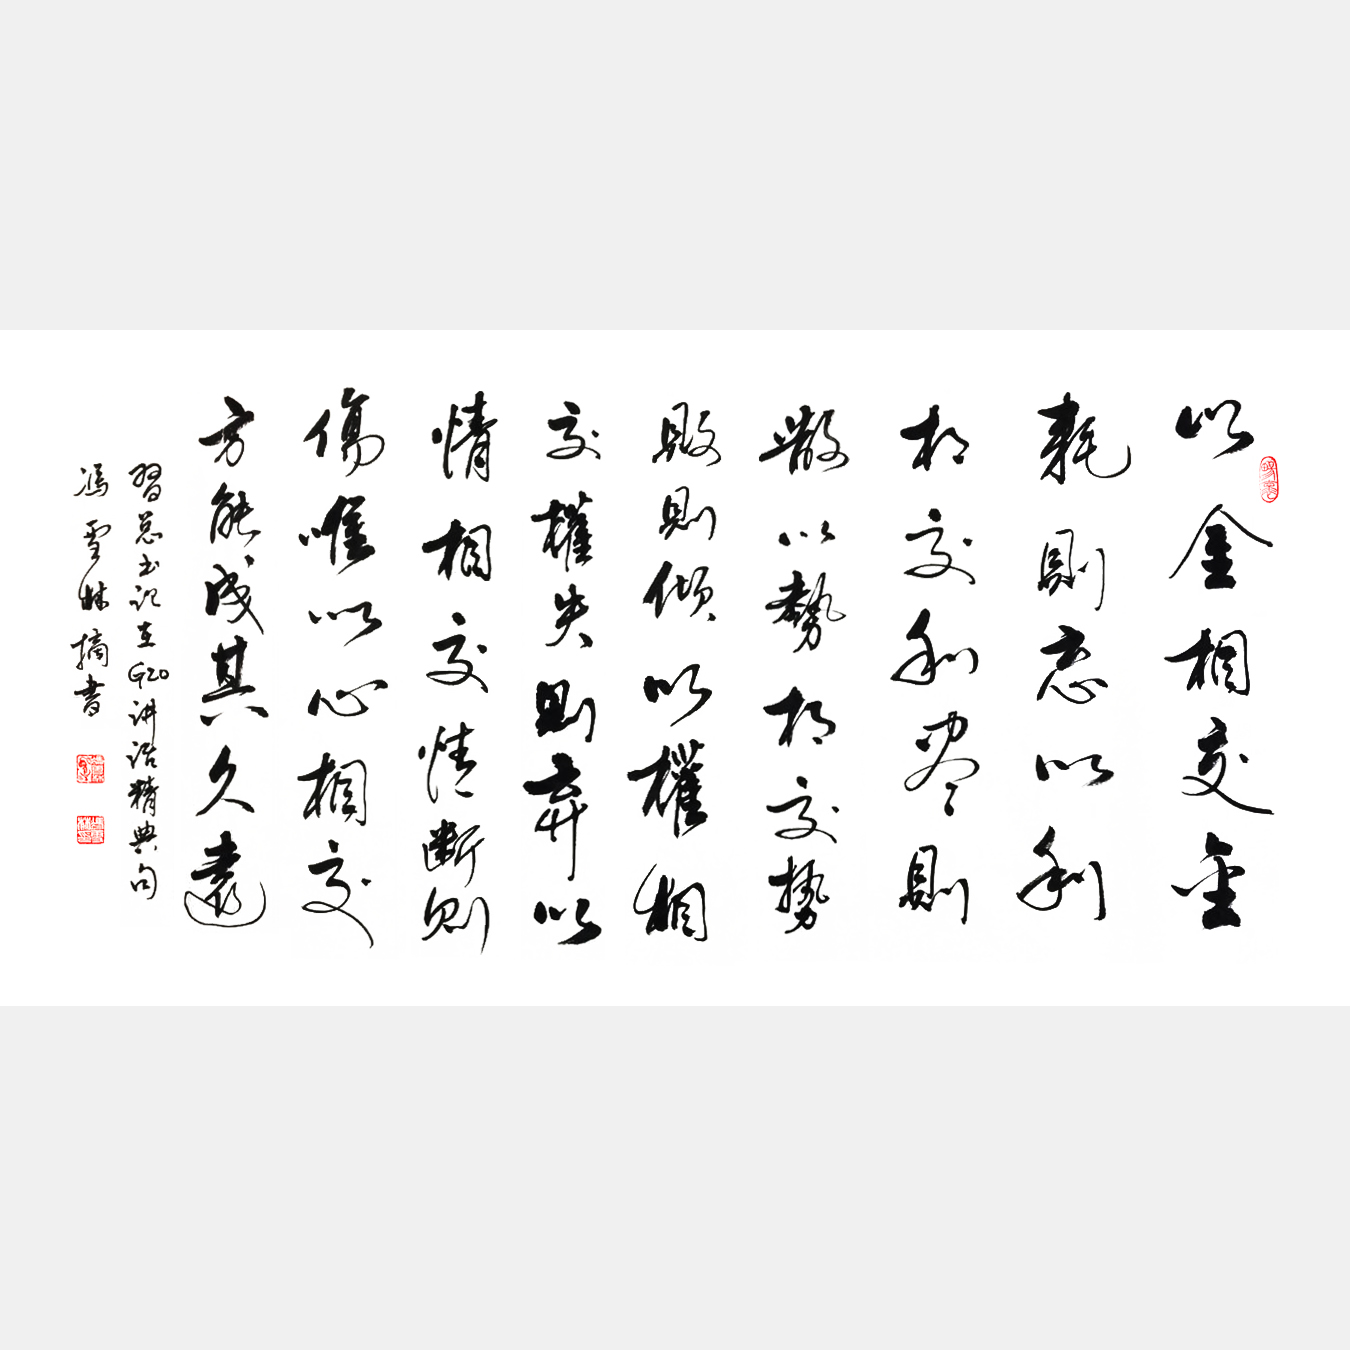 以金相交金
耗則忘以利
相交利尽則
散以勢相交勢
敗則傾以權相
交權失則棄以
情相交情斷則
傷唯以心相交
方能成其久遠
習总书记在G20讲话精典句
馮雪林摘書